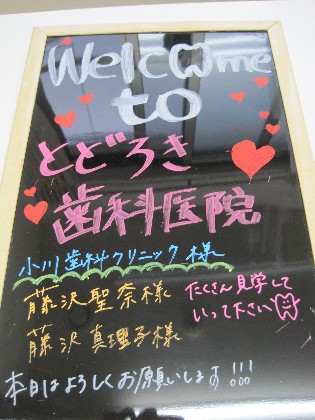 Welcome
to
とどろき
歯科医院
小川歯科クリニック様
藤沢聖奈様
藤沢真理子様
たくさん見学して
いって下さい
本日はよろしくお願いします!!!